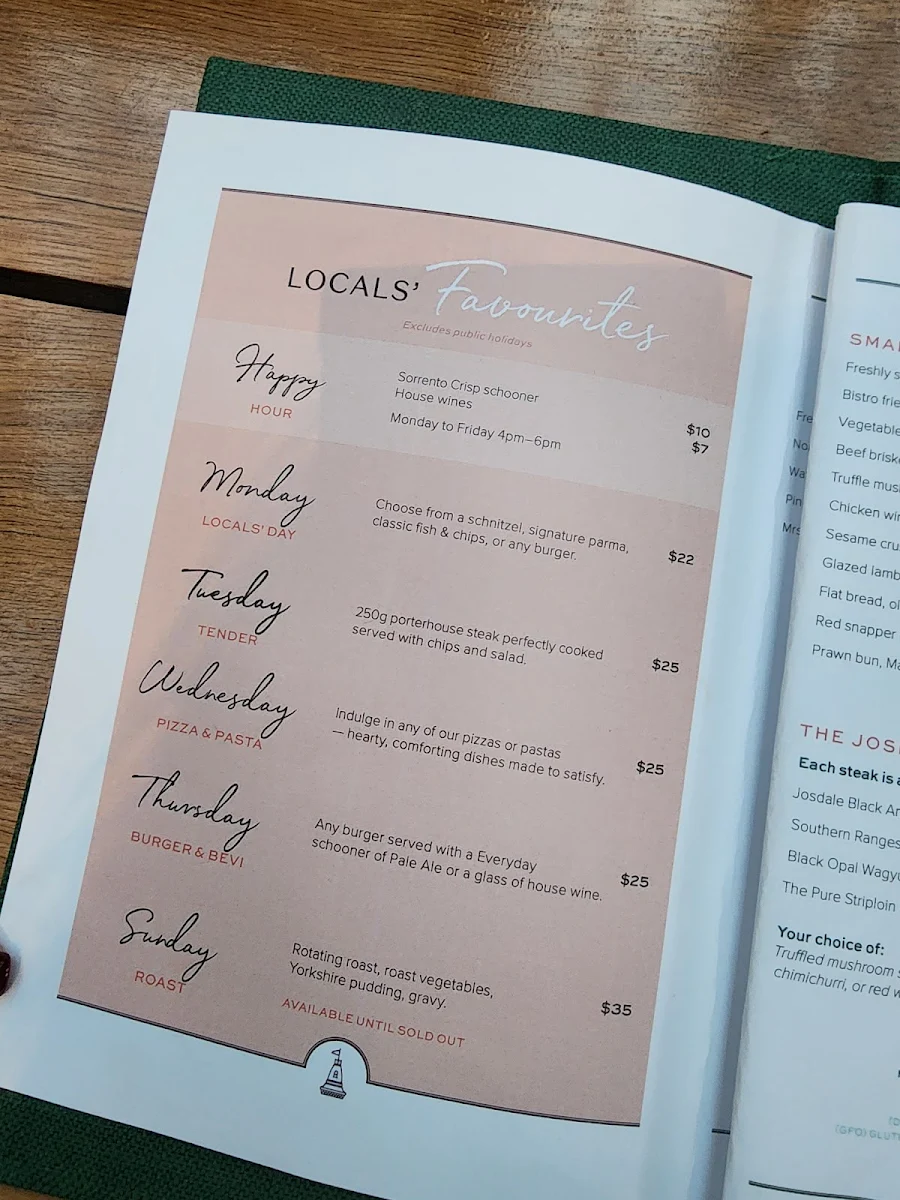 LOCALS' Favourites
Excludes public holidays
Happy
HOUR
Sorrento Crisp schooner
House wines
Monday to Friday 4pm–6pm
$10
$7
Monday
LOCALS' DAY
Choose from a schnitzel, signature parma,
classic fish & chips, or any burger.
$22
Tuesday
TENDER
250g porterhouse steak perfectly cooked
served with chips and salad.
$25
Wednesday
PIZZA & PASTA
Indulge in any of our pizzas or pastas
— hearty, comforting dishes made to satisfy.
$25
Thursday
BURGER & BEVI
Any burger served with a Everyday
schooner of Pale Ale or a glass of house wine.
$25
Sunday
ROAST
Rotating roast, roast vegetables,
Yorkshire pudding, gravy.
$35
AVAILABLE UNTIL SOLD OUT
Freshly
Bistro
Vegetable
Beef
Chicken
Sesame
Glazed lamb
Flat bread,
Red snapper
Prawn bun,
THE
Each steak is
Josdale Black
Southern Ranges
Black Opal
The Pure Striploin
Your choice of:
Truffled mushroom
chimichurri, or red